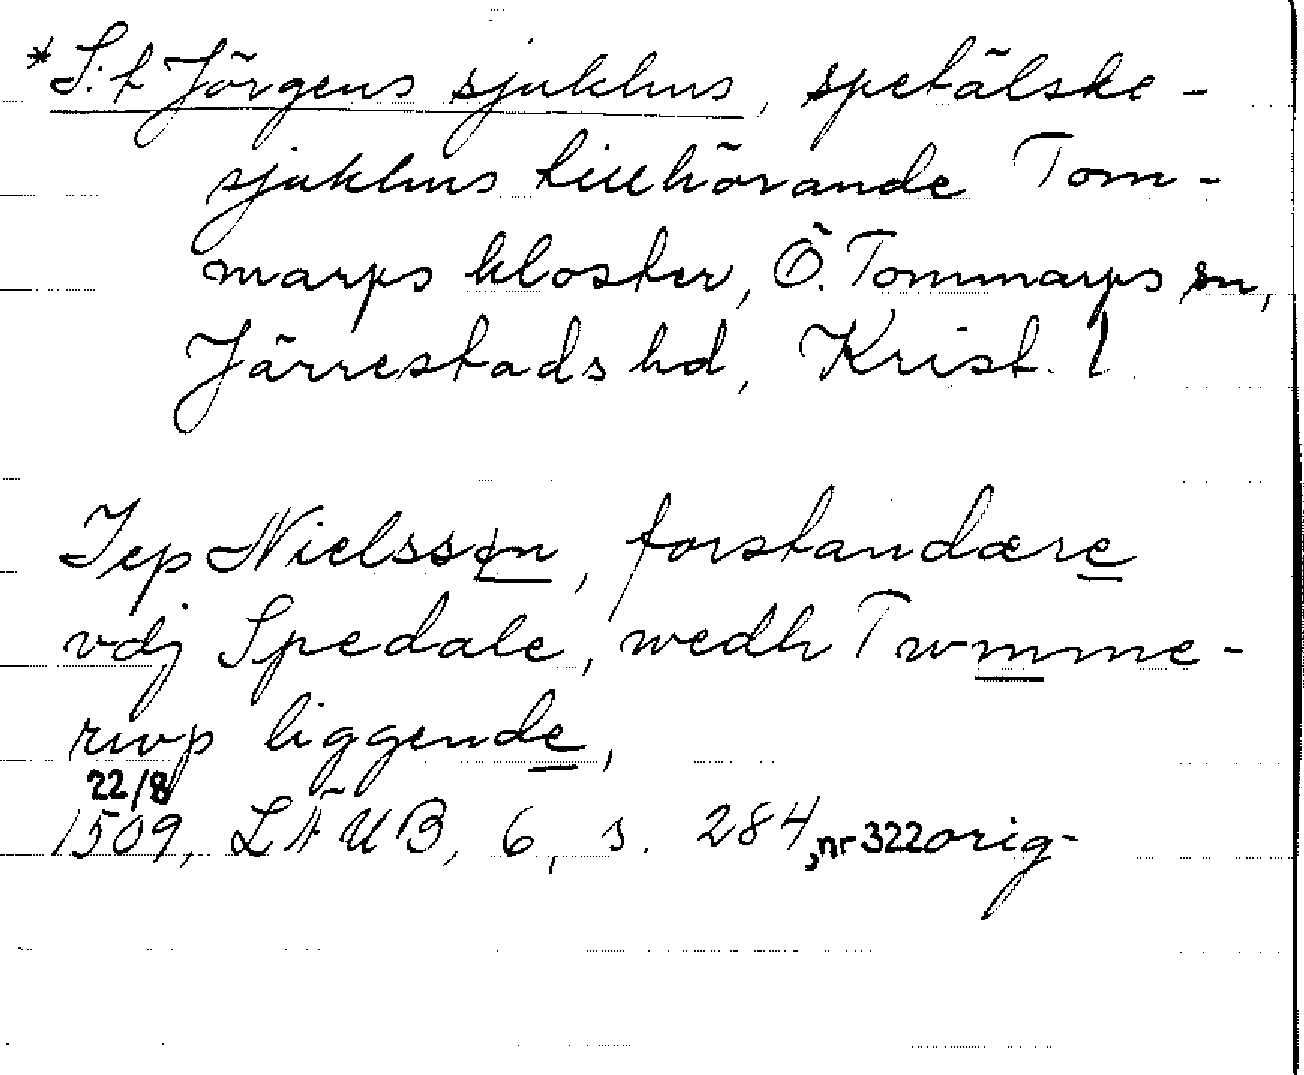 *S:t Jörgens sjukhus, spetälske-
sjukhus tillhörande Tom-
marps kloster, Ö. Tommarps sn,
Järrestads hd, Krist. l
Jep Nielssøn, forstandære
vdj Spedale, wedh Twmme-
rwp liggende,
22/8
1509, LÄUB, 6, s. 284, nr 322 orig-